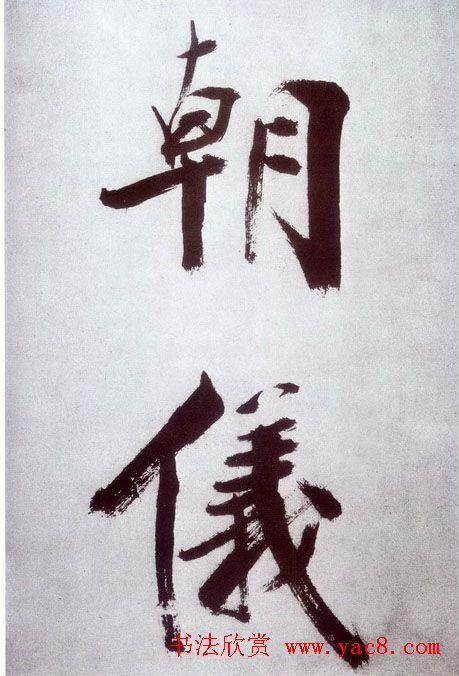 朝
儀
书法欣赏 www.yac8.com